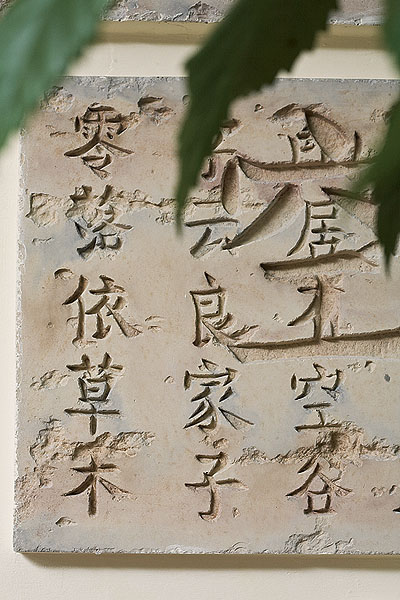 幽居在空谷
云良家子
零落依草木